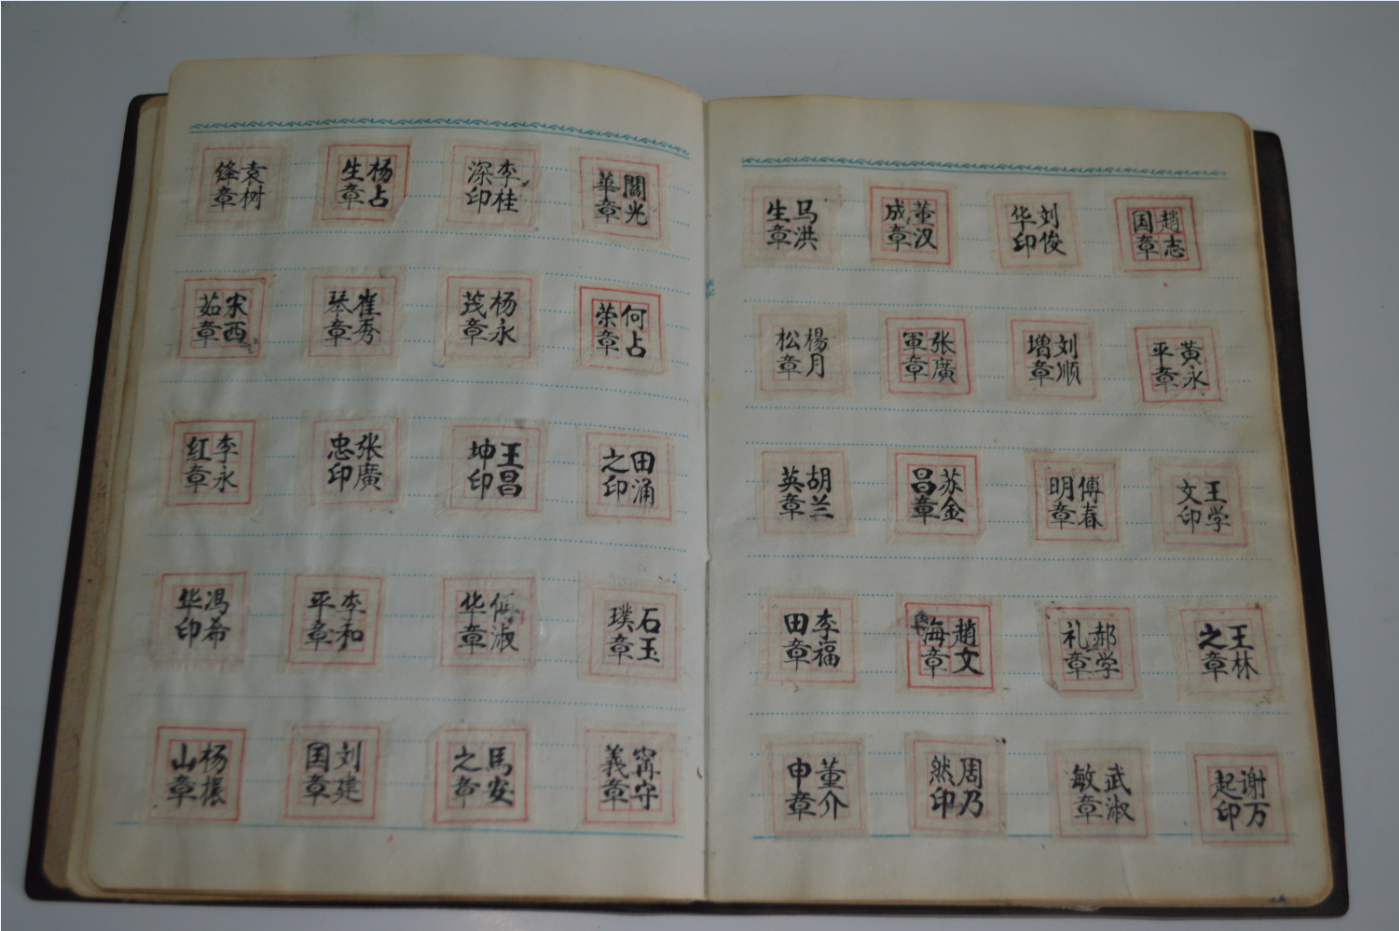 袁树锋章
杨占生章
李桂深印
閻光華章
宋西茹章
崔秀琴章
杨永茂章
何占荣章
李永红章
张廣忠印
王昌坤印
田涌之印
冯希华印
李和平章
何淑华章
石玉璞章
杨振山章
刘建国章
馬安之章
甯守義章
马洪生章
董汉成章
刘俊华印
趙志国章
楊月松章
张廣軍章
刘顺增章
黄永平章
胡兰英章
苏金昌章
傅春明章
王学文印
李福田章
趙文海章
郝学礼章
王林之章
董介申章
周乃然印
武淑敏章
谢万起印